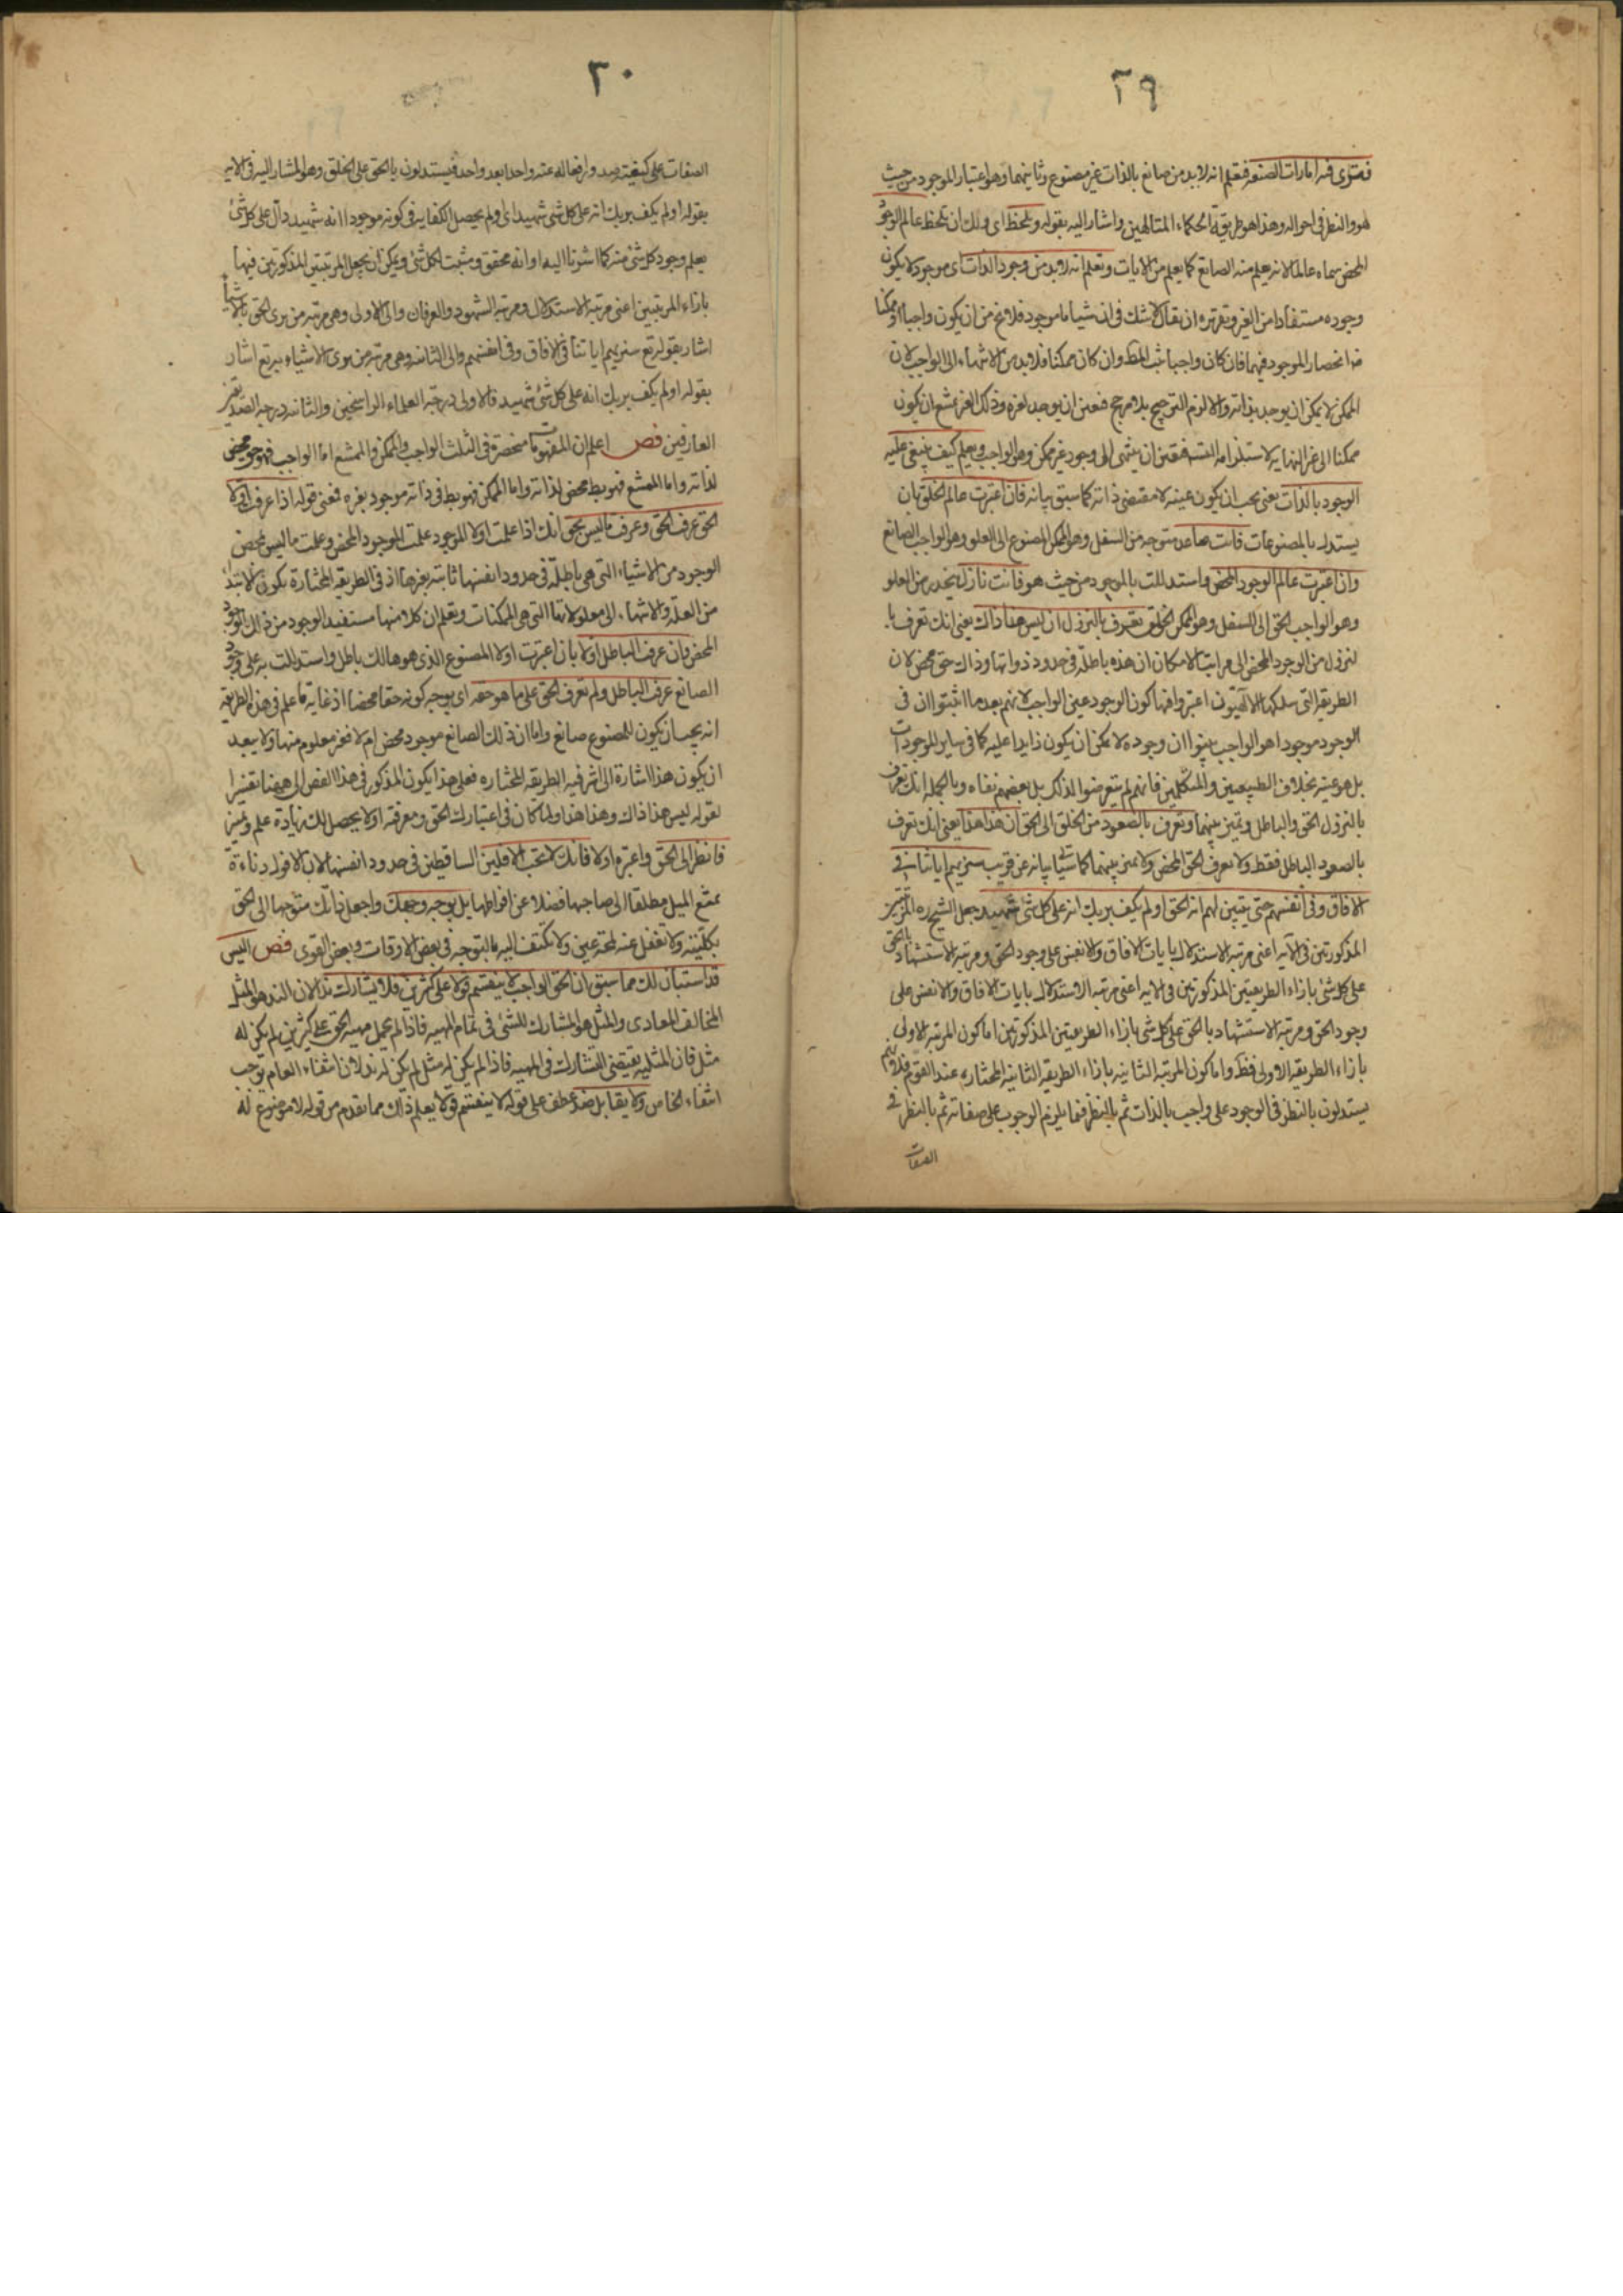 ٢٩
فترى فيه امارات الصنعة فتعلم انه لابد من صانع بالذات غير مصنوع وثانيهما وهو اعتبار الموجود من حيث
هو والنظر في احواله وهذا هو طريقة الحكماء المتالهين واشار اليه بقوله وتلحظ اى ولك ان تلحظ عالم الوجود
المحض سماه عالما لانه يعلم منه الصانع كما يعلم من الايات وتعلم انه لابد من وجود بالذات اى موجود لا يكون
وجوده مستفادا من الغير وتقريره ان يقال لا شك في ان شيأ ما موجود فلا يخ من ان يكون واجبا او ممكنا
انحصار الموجود فيهما فان كان واجبا ثبت المط وان كان ممكنا فلابد من الانتهاء الى الواجب لان
الممكن لا يمكن ان يوجد بذاته والا لزم الترجيح بلا مرجح فتعين ان يوجد لغيره وذلك الغير يمتنع ان يكون
ممكنا الى غير النهاية لاستلزامه التسلسل فتعين ان ينتهى الى وجود غير ممكن وهو الواجب ويعلم كيف ينبغى عليه
الوجود بالذات يعنى يجب ان يكون عينه لا مقتضى ذاته كما سبق بيانه فان اعتبرت عالم الخلق بان
يستدل بالمصنوعات فانت صاعد متوجه من السفل وهو الممكن المصنوع الى العلو وهو الواجب الصانع
وان اعتبرت عالم الوجود المحض واستدللت بالموجود من حيث هو فانت نازل ينحدر من العلو
وهو الواجب الحق الى السفل وهو الممكن الخلق تعرف بالنزول ان ليس هذا ذاك يعنى انك تعرف با
لنزول من الوجود المحض الى مراتب الامكان ان هذه باطلة في حدود ذواتها وذاك حق محض لان
الطريقة التى سلكها الالهيون اعتبروا فيها كون الوجود عين الواجب لانهم بعد ما اثبتوا ان في
الوجود موجودا هو الواجب بينوا ان وجوده لا يمكن ان يكون زايدا عليه كما في ساير الموجودات
بل هو عينه بخلاف الطبيعيين والمتكلمين فانهم لم يتعرضوا لذلك بل بعضهم نفاه وبالجملة انك تعرف
بالنزول الحق والباطل وتميز بينهما وتعرف بالصعود من الخلق الى الحق ان هذا هذا يعنى انك تعرف
بالصعود الباطل فقط ولا تعرف الحق المحض ولا تميز بينهما كما سيأتى بيانه عن قريب سنريهم اياتنا في
الافاق وفي انفسهم حتى يتبين لهم انه الحق او لم يكف بربك انه على كل شئ شهيد جعل الشيخ ره المرتبتين
المذكورتين في الآية اعنى مرتبة الاستدلال بايات الافاق والانفس على وجود الحق ومرتبة الاستشهاد بالحق
على كل شئ بازاء الطريقتين المذكورتين في الاية اعنى مرتبة الاستدلال بايات الافاق والانفس على
وجود الحق ومرتبة الاستشهاد بالحق على كل شئ بازاء الطريقتين المذكورتين اما كون المرتبة الاولى
بازاء الطريقة الاولى فظ واما كون المرتبة الثانية بازاء الطريقة الثانية المختارة عند القوم فلانهم
يستدلون بالنظر في الوجود على واجب بالذات ثم بالنظر فيما يلزم الوجوب على صفاته ثم بالنظر في
الصفات
٣٠
الصفات على كيفية صدور افعاله عنه واحدا بعد واحد فيستدلون بالحق على الخلق وهو المشار اليه في الاية
بقوله اولم يكف بربك انه على كل شئ شهيد اى اولم يحصل الكفاية في كونه موجودا انه شهيد دال على كل شئ
يعلم وجود كل شئ منه كما اشرنا اليه او انه محقق ومثبت لكل شئ ويمكن ان يجعل المرتبتين المذكورتين فيها
بازاء المرتبتين اعنى مرتبة الاستدلال ومرتبة الشهود والعرفان والى الاولى وهى مرتبة من يرى الحق بالاشياء
اشار بقوله تع سنريهم اياتنا في الافاق وفي انفسهم والى الثانية وهى مرتبة من يرى الاشياء به تع اشار
بقوله اولم يكف بربك انه على كل شئ شهيد فالاولى درجة العلماء الراسخين والثانية درجة الصديقين
العارفين فص اعلم ان المفهومات منحصرة في الثلث الواجب والممكن والممتنع اما الواجب فهو حق محض
لذاته واما الممتنع فهو بط محض لذاته واما الممكن فهو بط في ذاته موجود بغيره فمعنى قوله اذا عرفت اولا
الحق عرفت الحق وعرفت ما ليس بحق انك اذا علمت اولا الموجود علمت الموجود المحض وعلمت ما ليس بمحض
الوجود من الاشياء التى هى باطلة في حدود انفسها ثابتة بغيرها اذ في الطريقة المختارة يكون الابتداء
من العلة والانتهاء الى معلولاتها التى هى الممكنات وتعلم ان كلا منها مستفيد الوجود من ذلك الوجود
المحض وان عرفت الباطل اولا بان اعتبرت اولا المصنوع الذى هو هالك باطل واستدللت به على وجود
الصانع عرفت الباطل ولم تعرف الحق على ما هو حقه اى بوجه كونه حقا محضا اذ غاية ما علم في هذه الطريقة
انه يجب ان يكون للمصنوع صانع واما ان ذلك الصانع موجود محض ام لا فغير معلوم منها ولا يبعد
ان يكون هذا اشارة الى اشرفية الطريقة المختارة فعلى هذا يكون المذكور في هذا الفص الى ههنا تفسيرا
لقوله ليس هذا ذاك وهذا هذا ولما كان في اعتبارك الحق ومعرفته اولا يحصل لك زيادة علم وتميز
فانظر الى الحق واعتبره اولا فانك لا تحب الافلين الساقطين في حدود انفسها لان الافول دناءة
يمتنع الميل مطلقا الى صاحبها فضلا عن افراطها بل توجه وجهك واجعل ذاتك متوجها الى الحق
بكليته ولا تغفل عنه لمحة عين ولا تكتف اليه بالتوجه في بعض الاوقات وبعض القوى فص اليس
قد استبان لك مما سبق ان الحق الواجب لا ينقسم قولا على كثيرين فلا يشارك ندا لان الند هو المثل
المخالف المعادى والمثل هو المشارك للشئ في تمام المهية فاذا لم يحمل مهية الحق على كثيرين لم يكن له
مثل فان المثلية يقتضى التشارك في المهية فاذا لم يكن له مثل لم يكن له ند لان انتفاء العام يوجب
انتفاء الخاص ولا يقابل ضد عطف على قوله لا ينقسم قولا يعلم ذلك مما تقدم من قوله لا موضوع له